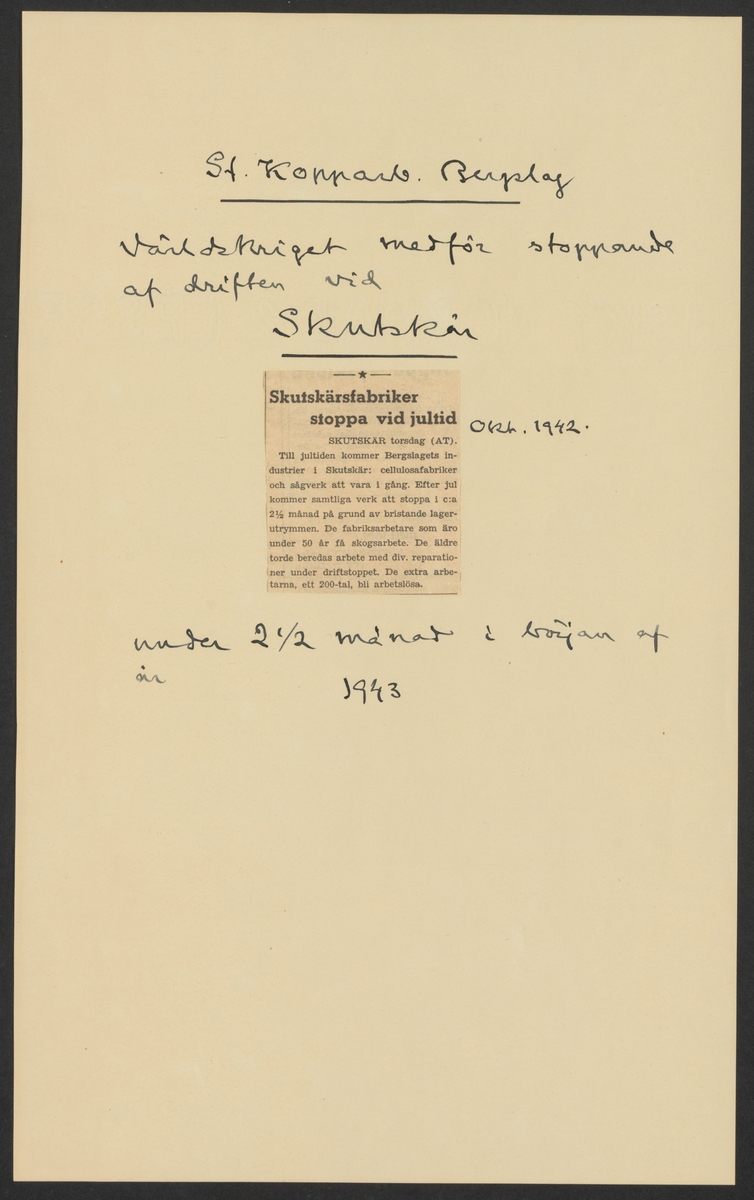 St. Kopparb. Bergslag
Världskriget medför stoppande
af driften vid
Skutskär
Skutskärsfabriker
stoppa vid jultid
Okt. 1942.
SKUTSKÄR torsdag (AT).
Till jultiden kommer Bergslagets in-
dustrier i Skutskär: cellulosafabriker
och sågverk att vara i gång. Efter jul
kommer samtliga verk att stoppa i c:a
2½ månad på grund av bristande lager-
utrymmen. De fabriksarbetare som äro
under 50 år få skogsarbete. De äldre
torde beredas arbete med div. reparatio-
ner under driftstoppet. De extra arbe-
tarna, ett 200-tal, bli arbetslösa.
under 2 1/2 månad i början af
år 1943